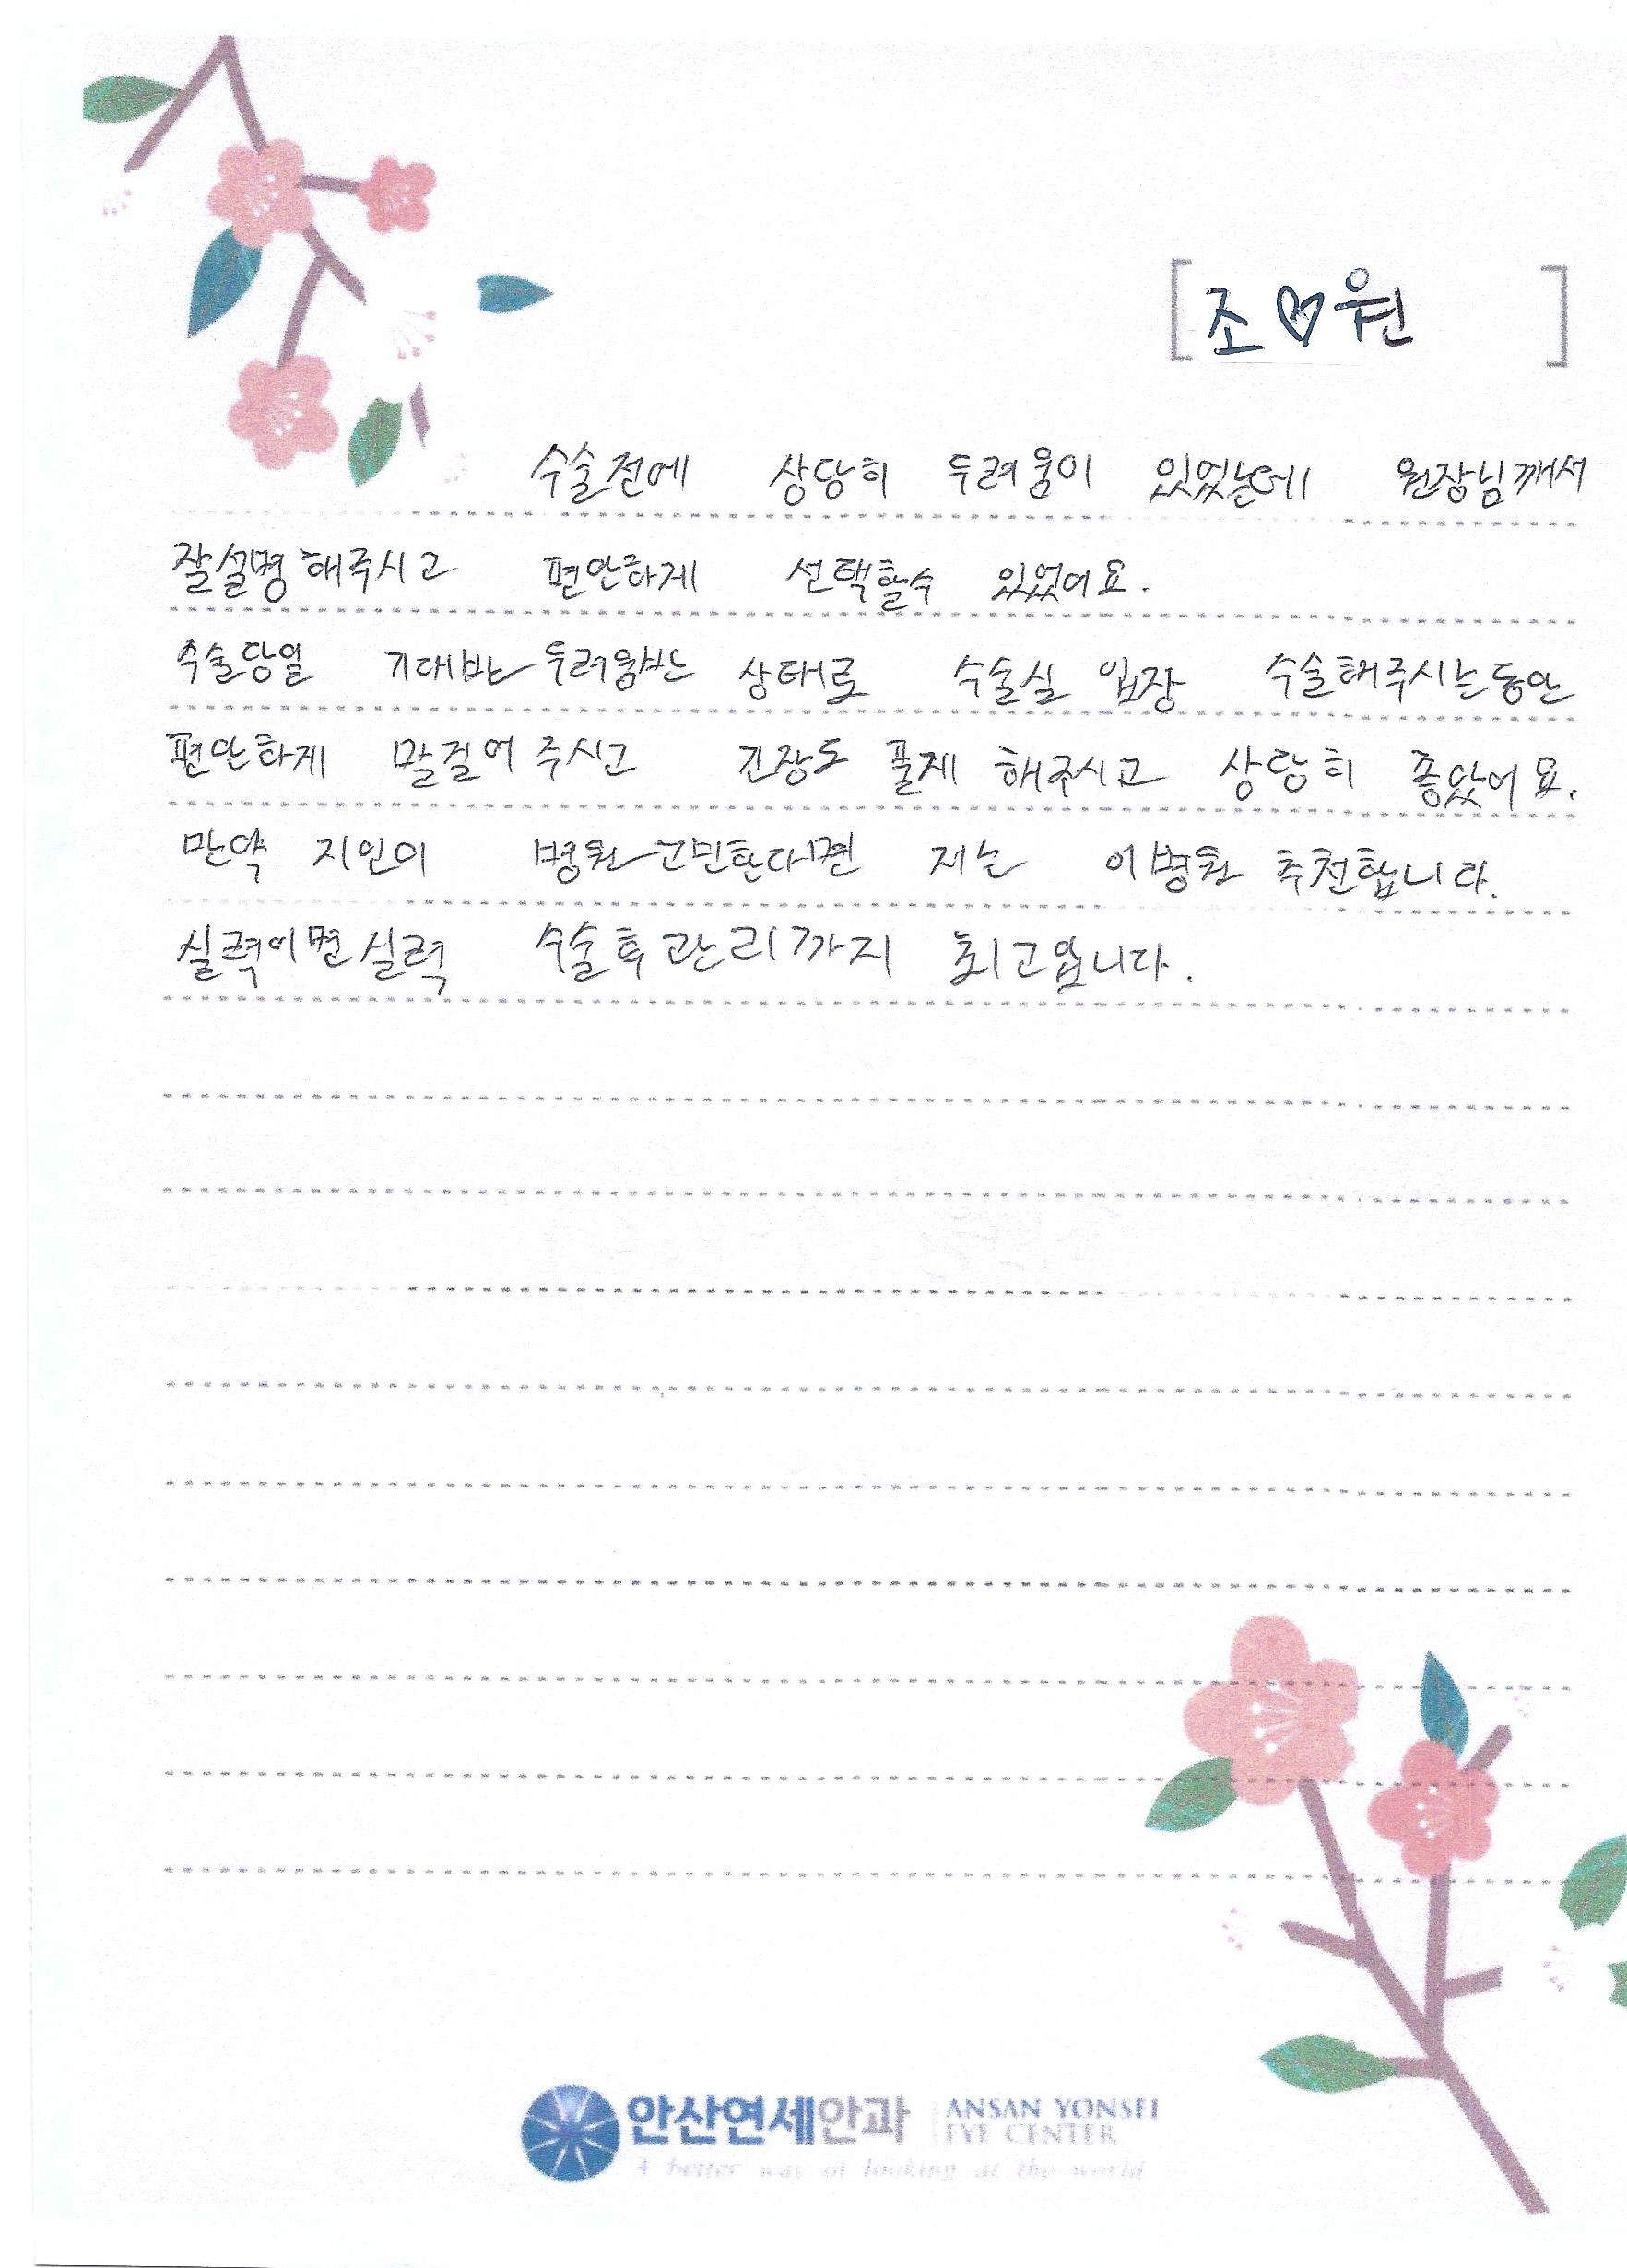 [조♡원]
수술전에 상당히 두려움이 있었는데 원장님께서
잘설명해주시고 편안하게 선택할수 있었어요.
수술당일 기대반 두려움반 상태로 수술실 입장 수술해주시는동안
편안하게 말걸어주시고 긴장도 풀게 해주시고 상당히 좋았어요.
만약 지인이 병원고민한다면 저는 이병원 추천합니다.
실력이면실력 수술후관리까지 최고입니다.
안산연세안과 ANSAN YONSEI
EYE CENTER
A better way of looking at the world